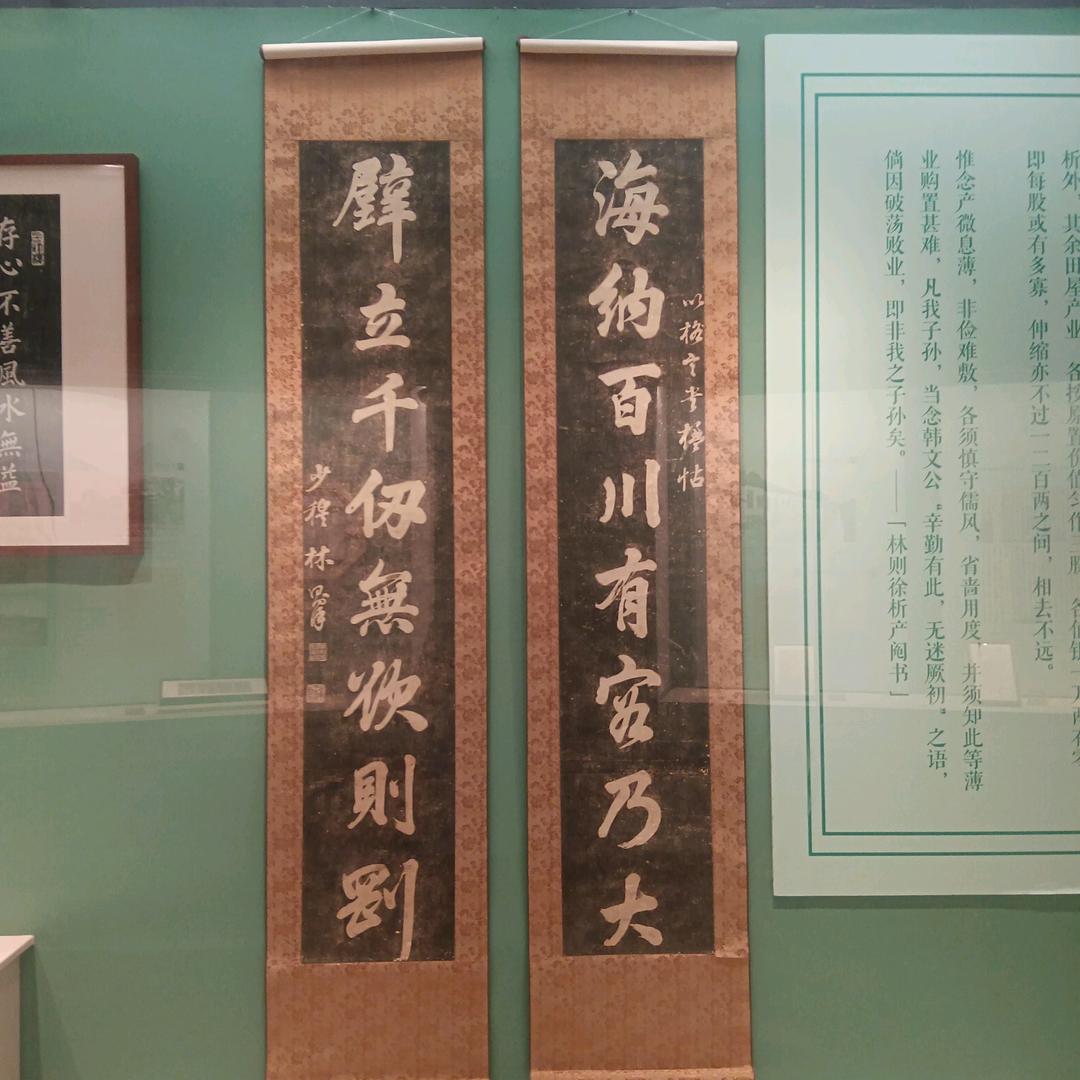 析外，其余田屋产业
即每股或有多寡，伸缩亦不过一二百两之间，相去不远。
惟念产微息薄，非俭难敷，各须慎守儒风，省啬用度，并须知此等薄
业购置甚难，凡我子孙，当念韩文公“辛勤有此，无迷厥初”之语，
倘因破荡败业，即非我之子孙矣。——「林则徐析产阄书」
以格言書楹帖
海納百川有容乃大
壁立千仞無欲則剛
少穆林則徐
存心不善風水無益